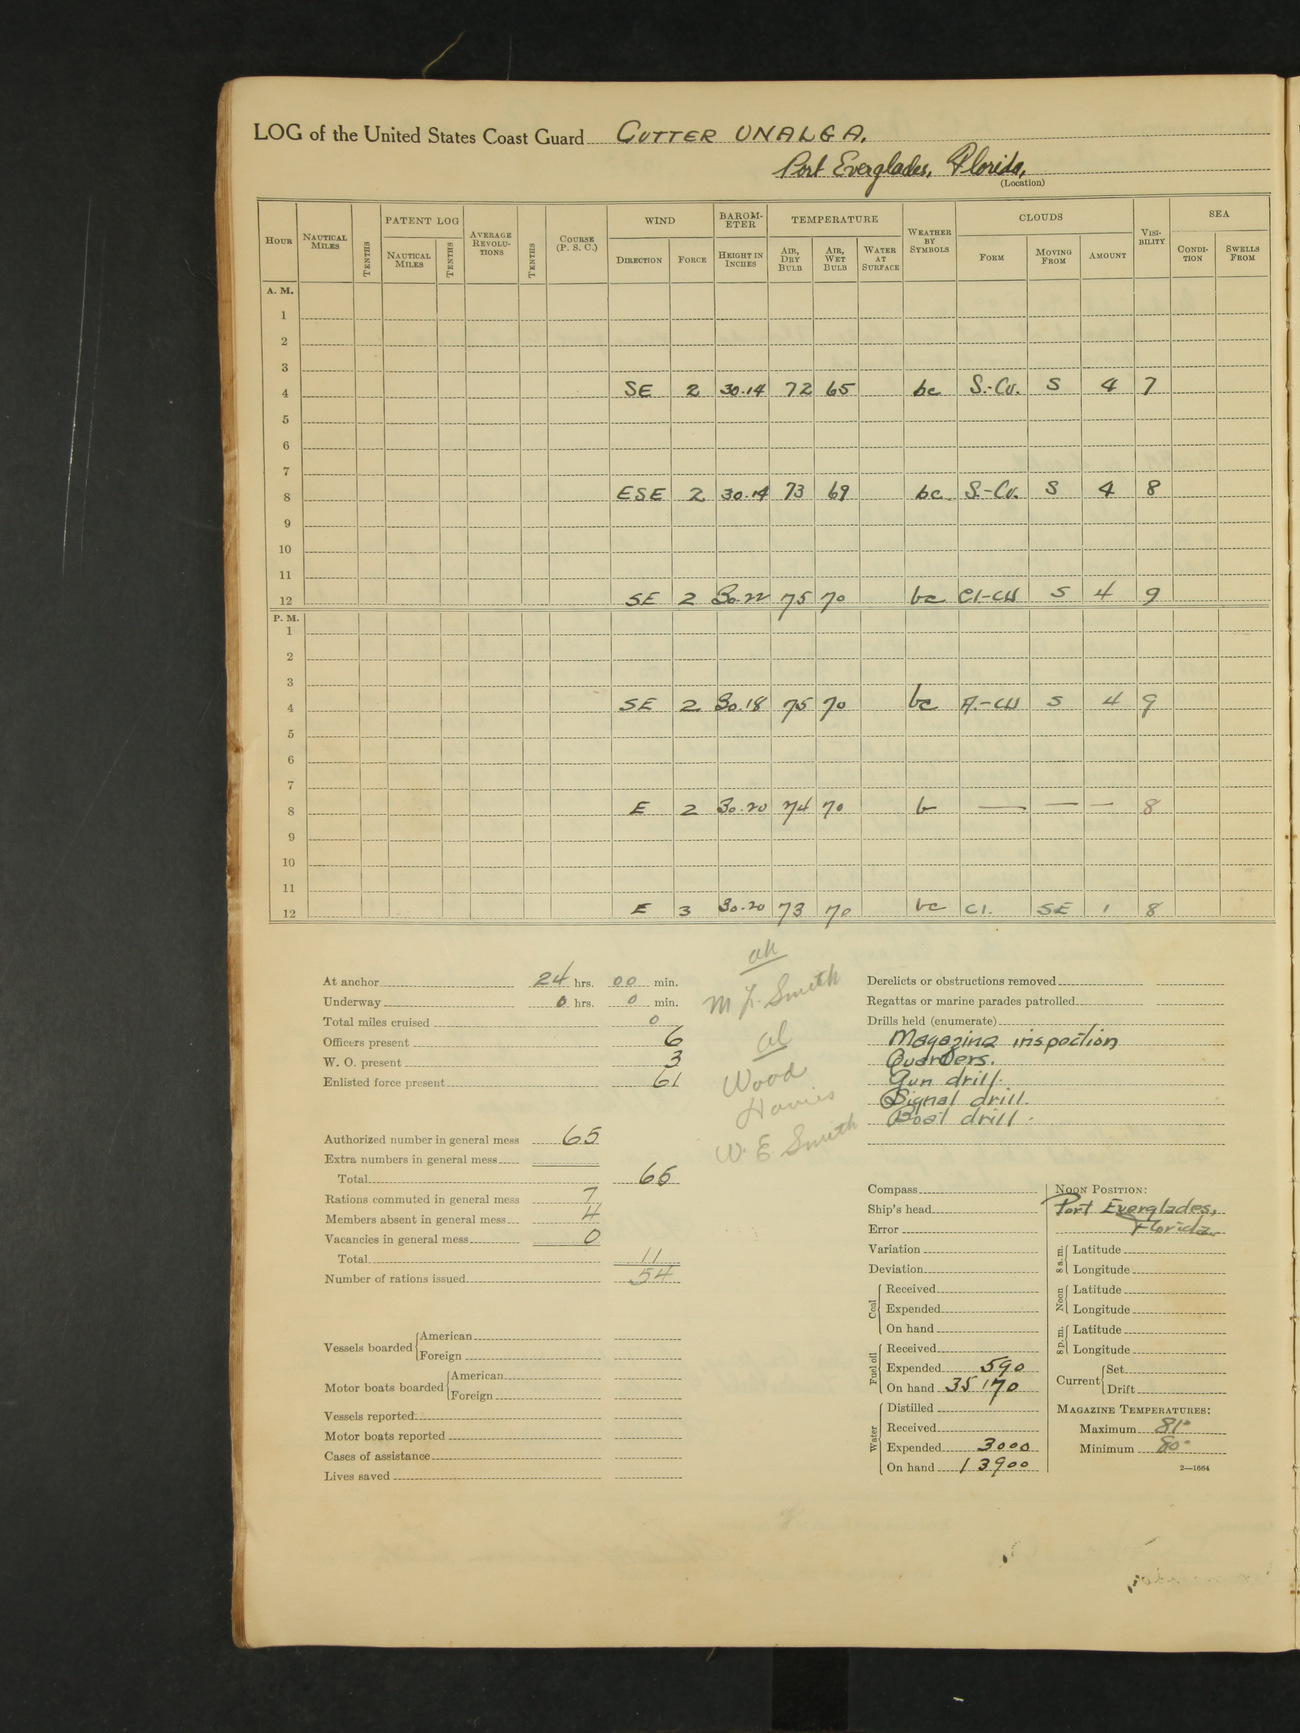 LOG of the United States Coast Guard CUTTER UNALGA.
Port Everglades, Florida,
(Location)
HOUR NAUTICAL MILES TENTHS PATENT LOG NAUTICAL MILES TENTHS AVERAGE REVOLUTIONS TENTHS COURSE (P. S. C.) WIND DIRECTION FORCE BAROMETER HEIGHT IN INCHES TEMPERATURE AIR, DRY BULB AIR, WET BULB WATER AT SURFACE WEATHER BY SYMBOLS CLOUDS FORM MOVING FROM AMOUNT VISIBILITY SEA CONDITION SWELLS FROM
A. M.
1
2
3
4 SE 2 30.14 72 65 bc S.-Cu. S 4 7
5
6
7
8 ESE 2 30.14 73 69 bc S.-Cu. S 4 8
9
10
11
12 SE 2 30.22 75 70 bc CI-CU S 4 9
P. M.
1
2
3
4 SE 2 30.18 75 70 bc A.-CU S 4 9
5
6
7
8 E 2 30.20 74 70 b — — — 8
9
10
11
12 E 3 30.20 73 70 bc CI. SE 1 8
At anchor 24 hrs. 00 min.
Underway 0 hrs. 0 min.
Total miles cruised 0
Officers present 6
W. O. present 3
Enlisted force present 61
Authorized number in general mess 65
Extra numbers in general mess
Total 65
Rations commuted in general mess 7
Members absent in general mess 4
Vacancies in general mess 0
Total 11
Number of rations issued 54
Vessels boarded American
Foreign
Motor boats boarded American
Foreign
Vessels reported
Motor boats reported
Cases of assistance
Lives saved
M. F. Smith
al
Wood
W. E. Smith
Derelicts or obstructions removed
Regattas or marine parades patrolled
Drills held (enumerate)
Magazine inspection
Quarters.
Gun drill.
Signal drill.
Boat drill.
Compass
Ship's head
Error
Variation
Deviation
Coal Received
Expended
On hand
Fuel oil Received
Expended 590
On hand 35170
Water Distilled
Received
Expended 3000
On hand 13900
NOON POSITION:
Port Everglades,
Florida.
8 a. m. Latitude
Longitude
Noon Latitude
Longitude
8 p. m. Latitude
Longitude
Current Set
Drift
MAGAZINE TEMPERATURES:
Maximum 81°
Minimum 80°
2—1664